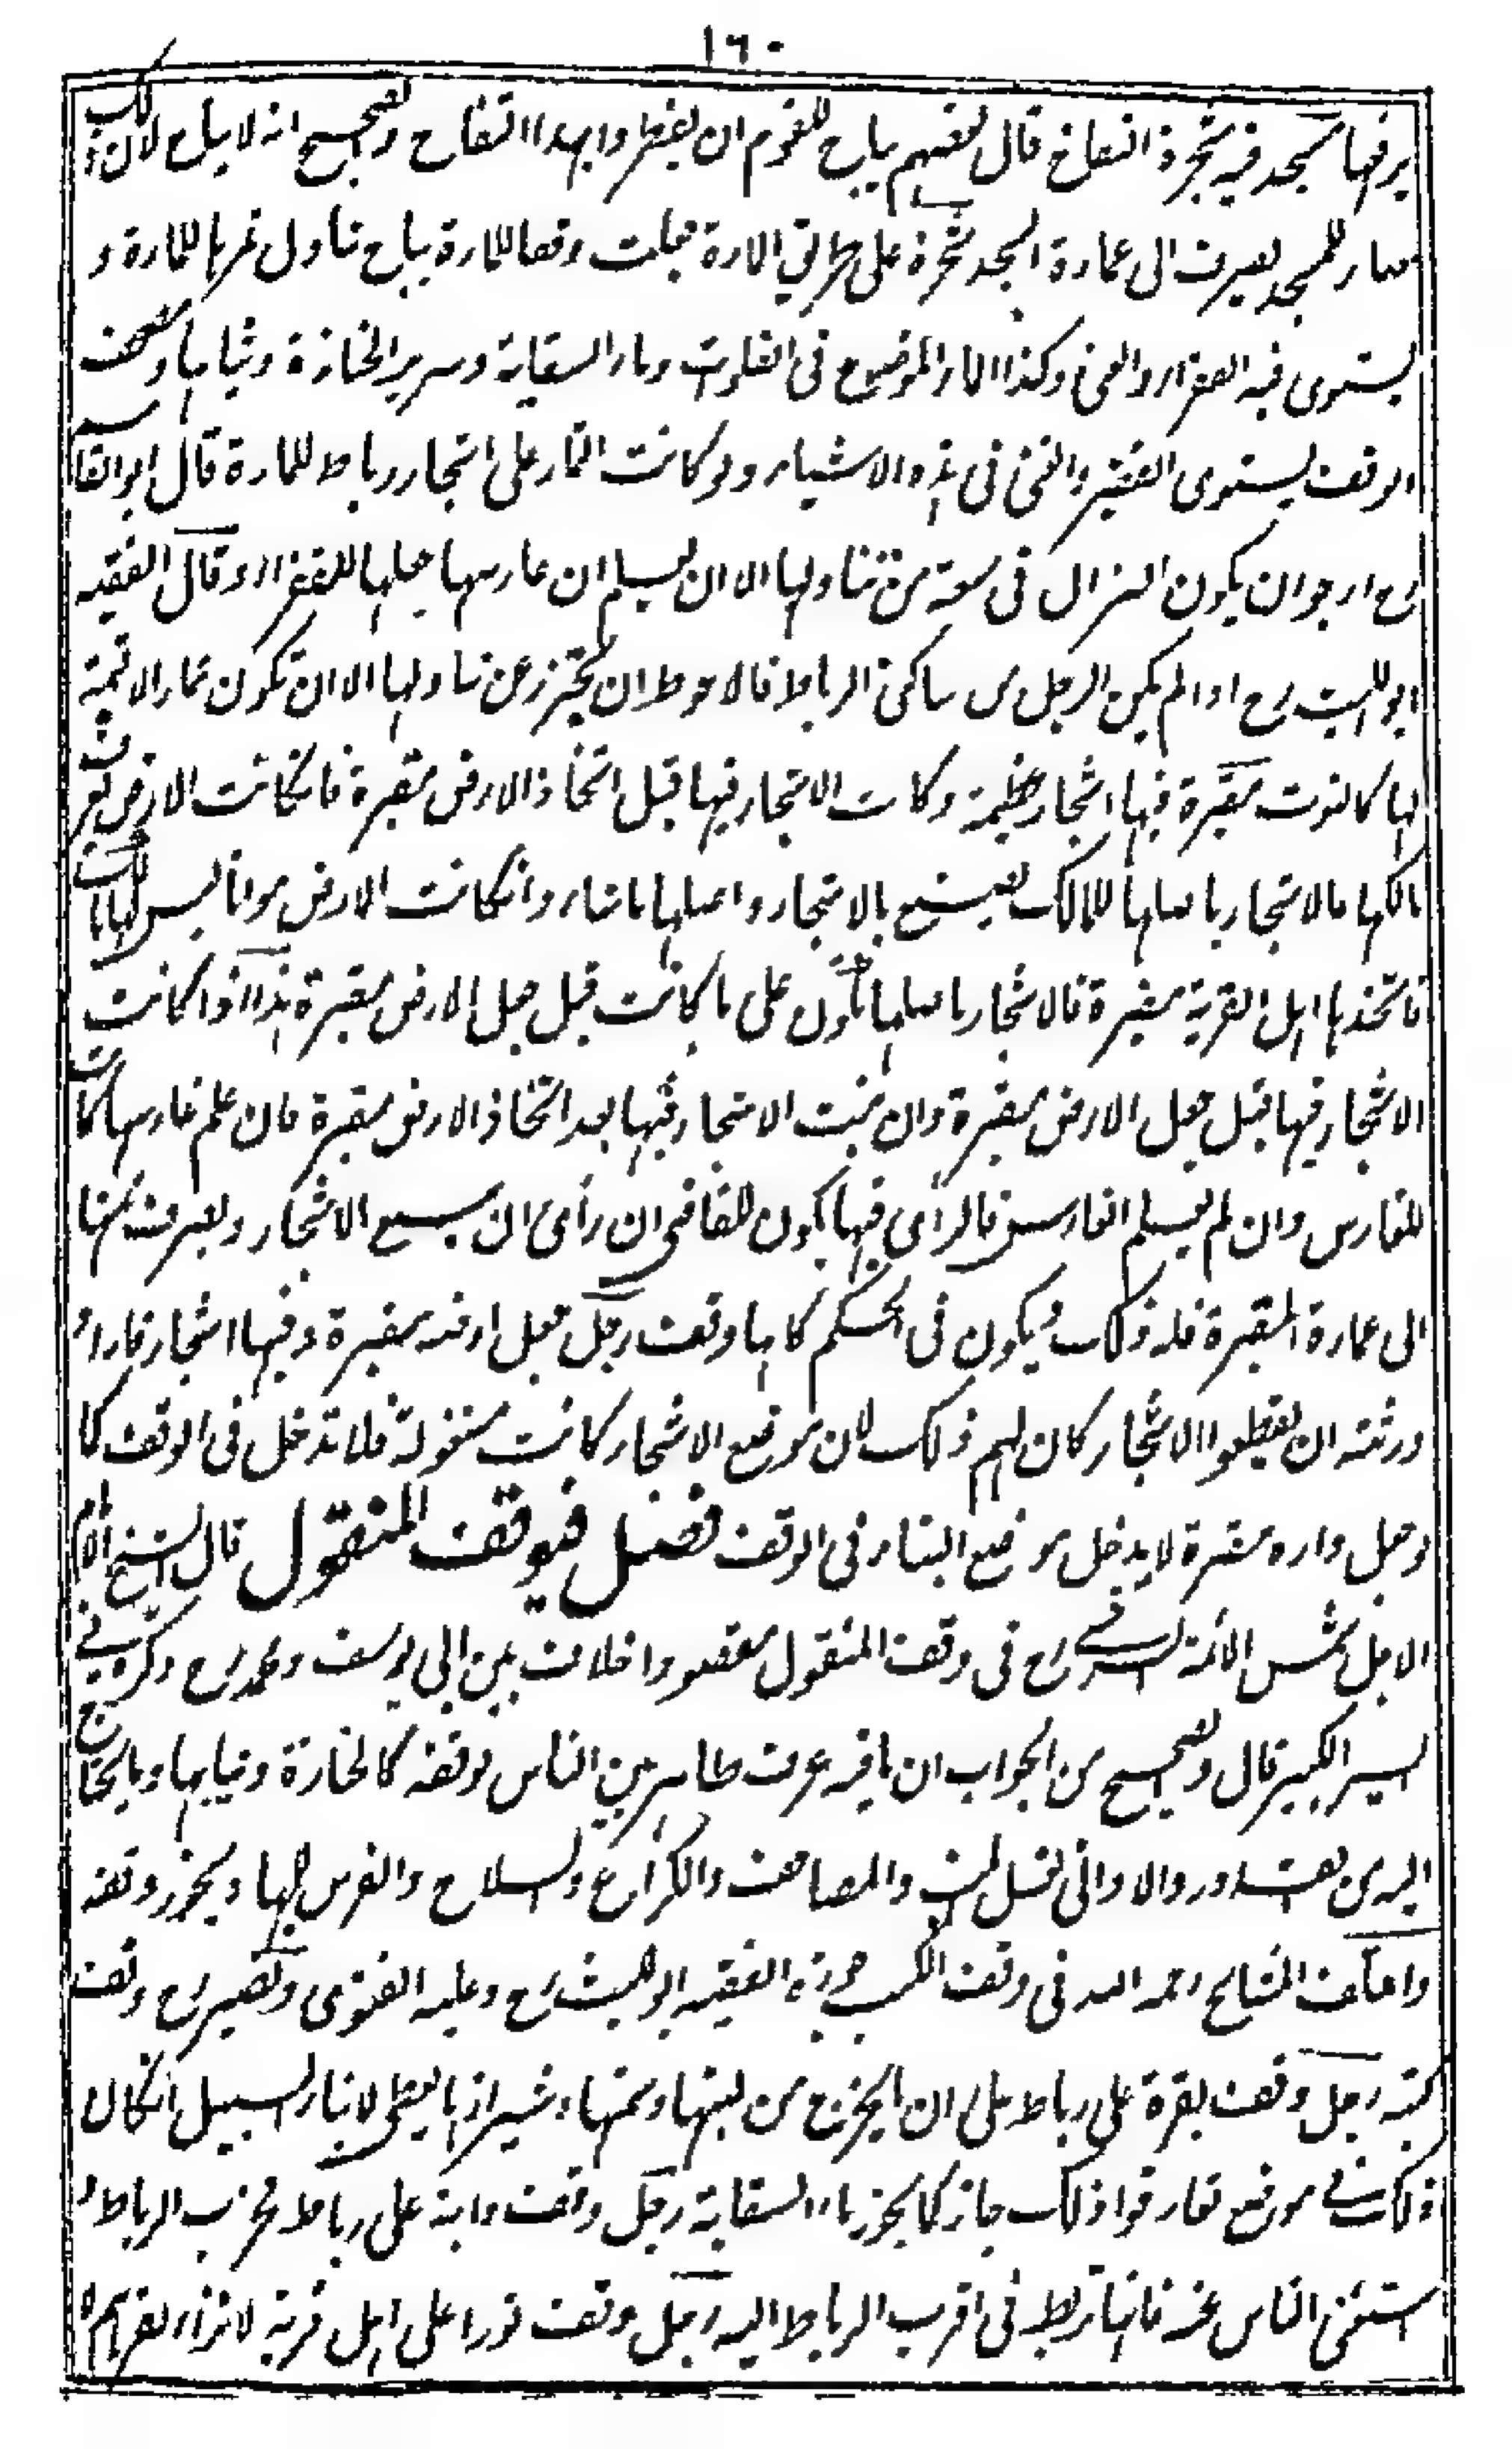 ١٦٠
يرفها مسجد فيه شجرة التفاح قال بعضهم يباح للقوم ان يفطروا بهذا التفاح والصحيح انه لا يباح لان ذلك
صار للمسجد يصرف الى عمارة المسجد شجرة على طريق المارة جعلت وقفا للمارة يباح تناول ثمرها للمارة و
يستوى فيه الفقراء والغنى وكذا الماء الموضوع فى الفلوات وماء السقاية وسرير الجنازة وثيابها ومصحف
الوقف يستوى الفقير والغنى فى هذه الاشياء ولو كانت الثمار على اشجار رباط للمارة قال ابو القاسم
رح ارجو ان يكون النزال فى سعة من تناولها الا ان يعلم ان غارسها جعلها للفقراء وقال الفقيه
ابو الليث رح اذا لم يكن الرجل من ساكنى الرباط فالاحوط ان يحترز عن تناولها الا ان تكون ثمار الا قيمة
لها كالتوت مقبرة فيها اشجار عظيمة وكانت الاشجار فيها قبل اتخاذ الارض مقبرة فانكانت الارض يعرف
مالكها فالاشجار باصلها للمالك يصنع بالاشجار واصلها ما شاء وانكانت الارض مواتا ليس لها مالك
فاتخذها اهل القرية مقبرة فالاشجار باصلها تكون على ما كانت قبل جعل الارض مقبرة هذا اذا كانت
الاشجار فيها قبل جعل الارض مقبرة وان نبت الاشجار فيها بعد اتخاذ الارض مقبرة فان علم غارسها كانت
للغارس وان لم يعلم الغارس فالرأى فيها يكون للقاضى ان رأى ان يبيع الاشجار ويصرف ثمنها
الى عمارة المقبرة فله ذلك ويكون فى الحكم كانها وقف رجل جعل ارضه مقبرة وفيها اشجار فاراد
ورثته ان يقطعوا الاشجار كان لهم ذلك لان موضع الاشجار كانت مشغولة فلا تدخل فى الوقف كما
لو جعل داره مقبرة لا يدخل موضع البناء فى الوقف فصل فى وقف المنقول قال الشيخ الامام
الاجل شمس الائمة السرخسى رح فى وقف المنقول مقصودا خلاف بين ابى يوسف ومحمد رح ذكره فى
السير الكبير قال والصحيح من الجواب ان ما فيه عرف ظاهر بين الناس بوقفه كالجنازة وثيابها وما يحتاج
اليه من القدور والاوانى لغسل الميت والمصاحف والكراع والسلاح والفرس للجهاد يجوز وقفه
واختلف المشايخ رحمه الله فى وقف الكتب جوزه الفقيه ابو الليث رح وعليه الفتوى ونصير رح وقف
كتبه رجل وقف بقرة على رباط على ان ما يخرج من لبنها وسمنها وشيرازها يعطى لابناء السبيل انكان
ذلك فى موضع تعارفوا ذلك جاز كما يجوز ماء السقاية رجل وقف دابة على رباط فخرب الرباط و
استغنى الناس عنه فانها تربط فى اقرب الرباط اليه رجل وقف ثورا على اهل قرية لانزاء بقرهم